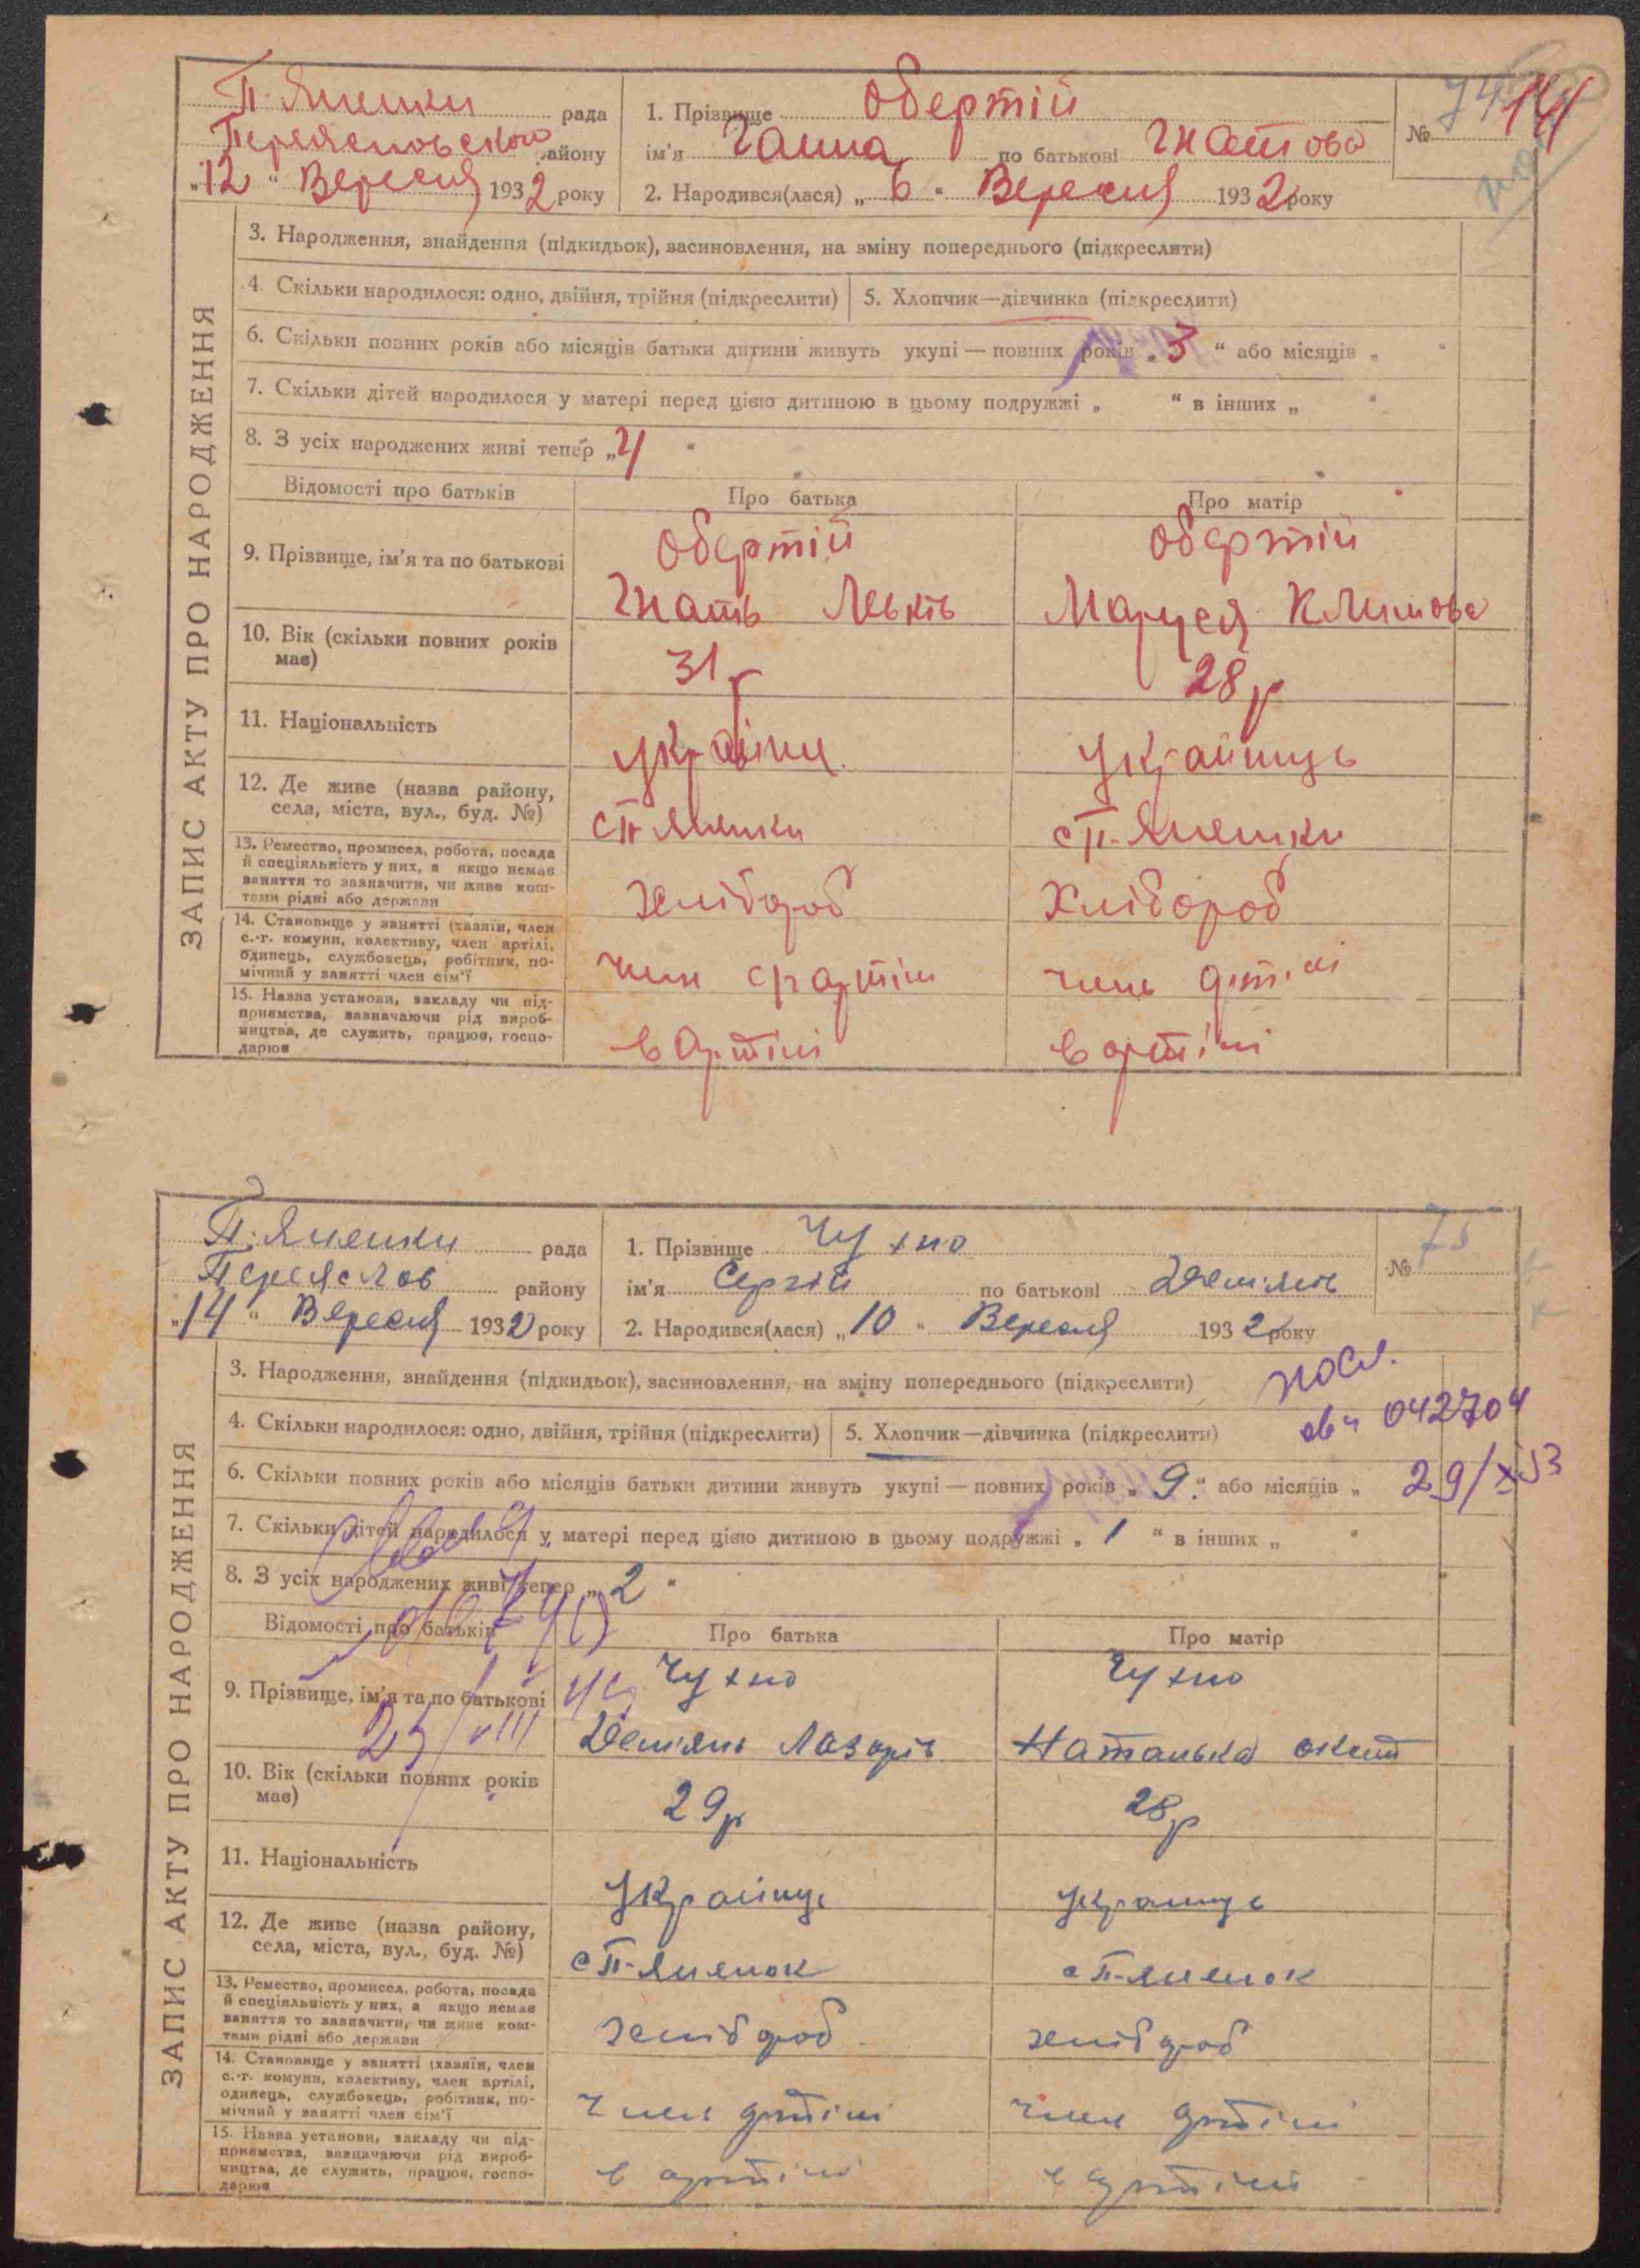 П. Яненки рада
Переясловского району
"12" Вересня 1932 року
1. Прізвище Обертій
ім'я Ганна по батькові Гнатова
2. Народився(лася) „6" Вересня 1932 року
№ 74 141
ЗАПИС АКТУ ПРО НАРОДЖЕННЯ
3. Народження, знайдення (підкидьок), засиновлення, на зміну попереднього (підкреслити)
4. Скільки народилося: одно, двійня, трійня (підкреслити) 5. Хлопчик—дівчинка (підкреслити)
6. Скільки повних років або місяців батьки дитини живуть укупі — повних років „3" або місяців „ "
7. Скільки дітей народилося у матері перед цією дитиною в цьому подружжі „ " в інших „ "
8. З усіх народжених живі тепер „ "
Відомості про батьків Про батька Про матір
9. Прізвище, ім'я та по батькові Обертій Обертій
Гнать Левків Маруся Климова
10. Вік (скільки повних років має) 31 р 28 р
11. Національність україн. Українць
12. Де живе (назва району, села, міста, вул., буд. №) с П Яненки с П. Яненки
13. Ремество, промисел, робота, посада
й спеціяльність у них, а якщо немає
заняття то зазначити, чи живе кош-
тами рідні або держави хлібороб Хлібороб
14. Становище у занятті (хазяїн, член
с.-г. комуни, колективу, член артілі,
одинець, службовець, робітник, по-
мічний у занятті член сім'ї член артілі
15. Назва установи, закладу чи під-
приємства, зазначаючи рід вироб-
ництва, де служить, працює, госпо-
дарює в артілі в артілі
П. Яненки рада
Переяслов району
"14" Вересня 1932 року
1. Прізвище Чухно
ім'я Сергій по батькові Демянів
2. Народився(лася) „10" Вересня 1932 року
№ 75
ЗАПИС АКТУ ПРО НАРОДЖЕННЯ
3. Народження, знайдення (підкидьок), засиновлення, на зміну попереднього (підкреслити)
4. Скільки народилося: одно, двійня, трійня (підкреслити) 5. Хлопчик—дівчинка (підкреслити)
042704
6. Скільки повних років або місяців батьки дитини живуть укупі — повних років „9" або місяців „
29/XI 53
7. Скільки дітей народилося у матері перед цією дитиною в цьому подружжі „1" в інших „ "
8. З усіх народжених живі тепер „2"
Відомості про батьків Про батька Про матір
9. Прізвище, ім'я та по батькові Чухно Чухно
25/VIII
Демянь Лазорів Наталька
10. Вік (скільки повних років має) 29 р 28 р
11. Національність Українць українць
12. Де живе (назва району, села, міста, вул., буд. №) с П-Яненок с П-Яненок
13. Ремество, промисел, робота, посада
й спеціяльність у них, а якщо немає
заняття то зазначити, чи живе кош-
тами рідні або держави хлібороб хлібороб
14. Становище у занятті (хазяїн, член
с.-г. комуни, колективу, член артілі,
одинець, службовець, робітник, по-
мічний у занятті член сім'ї член артілі член артілі
15. Назва установи, закладу чи під-
приємства, зазначаючи рід вироб-
ництва, де служить, працює, госпо-
дарює в артілі в артілі